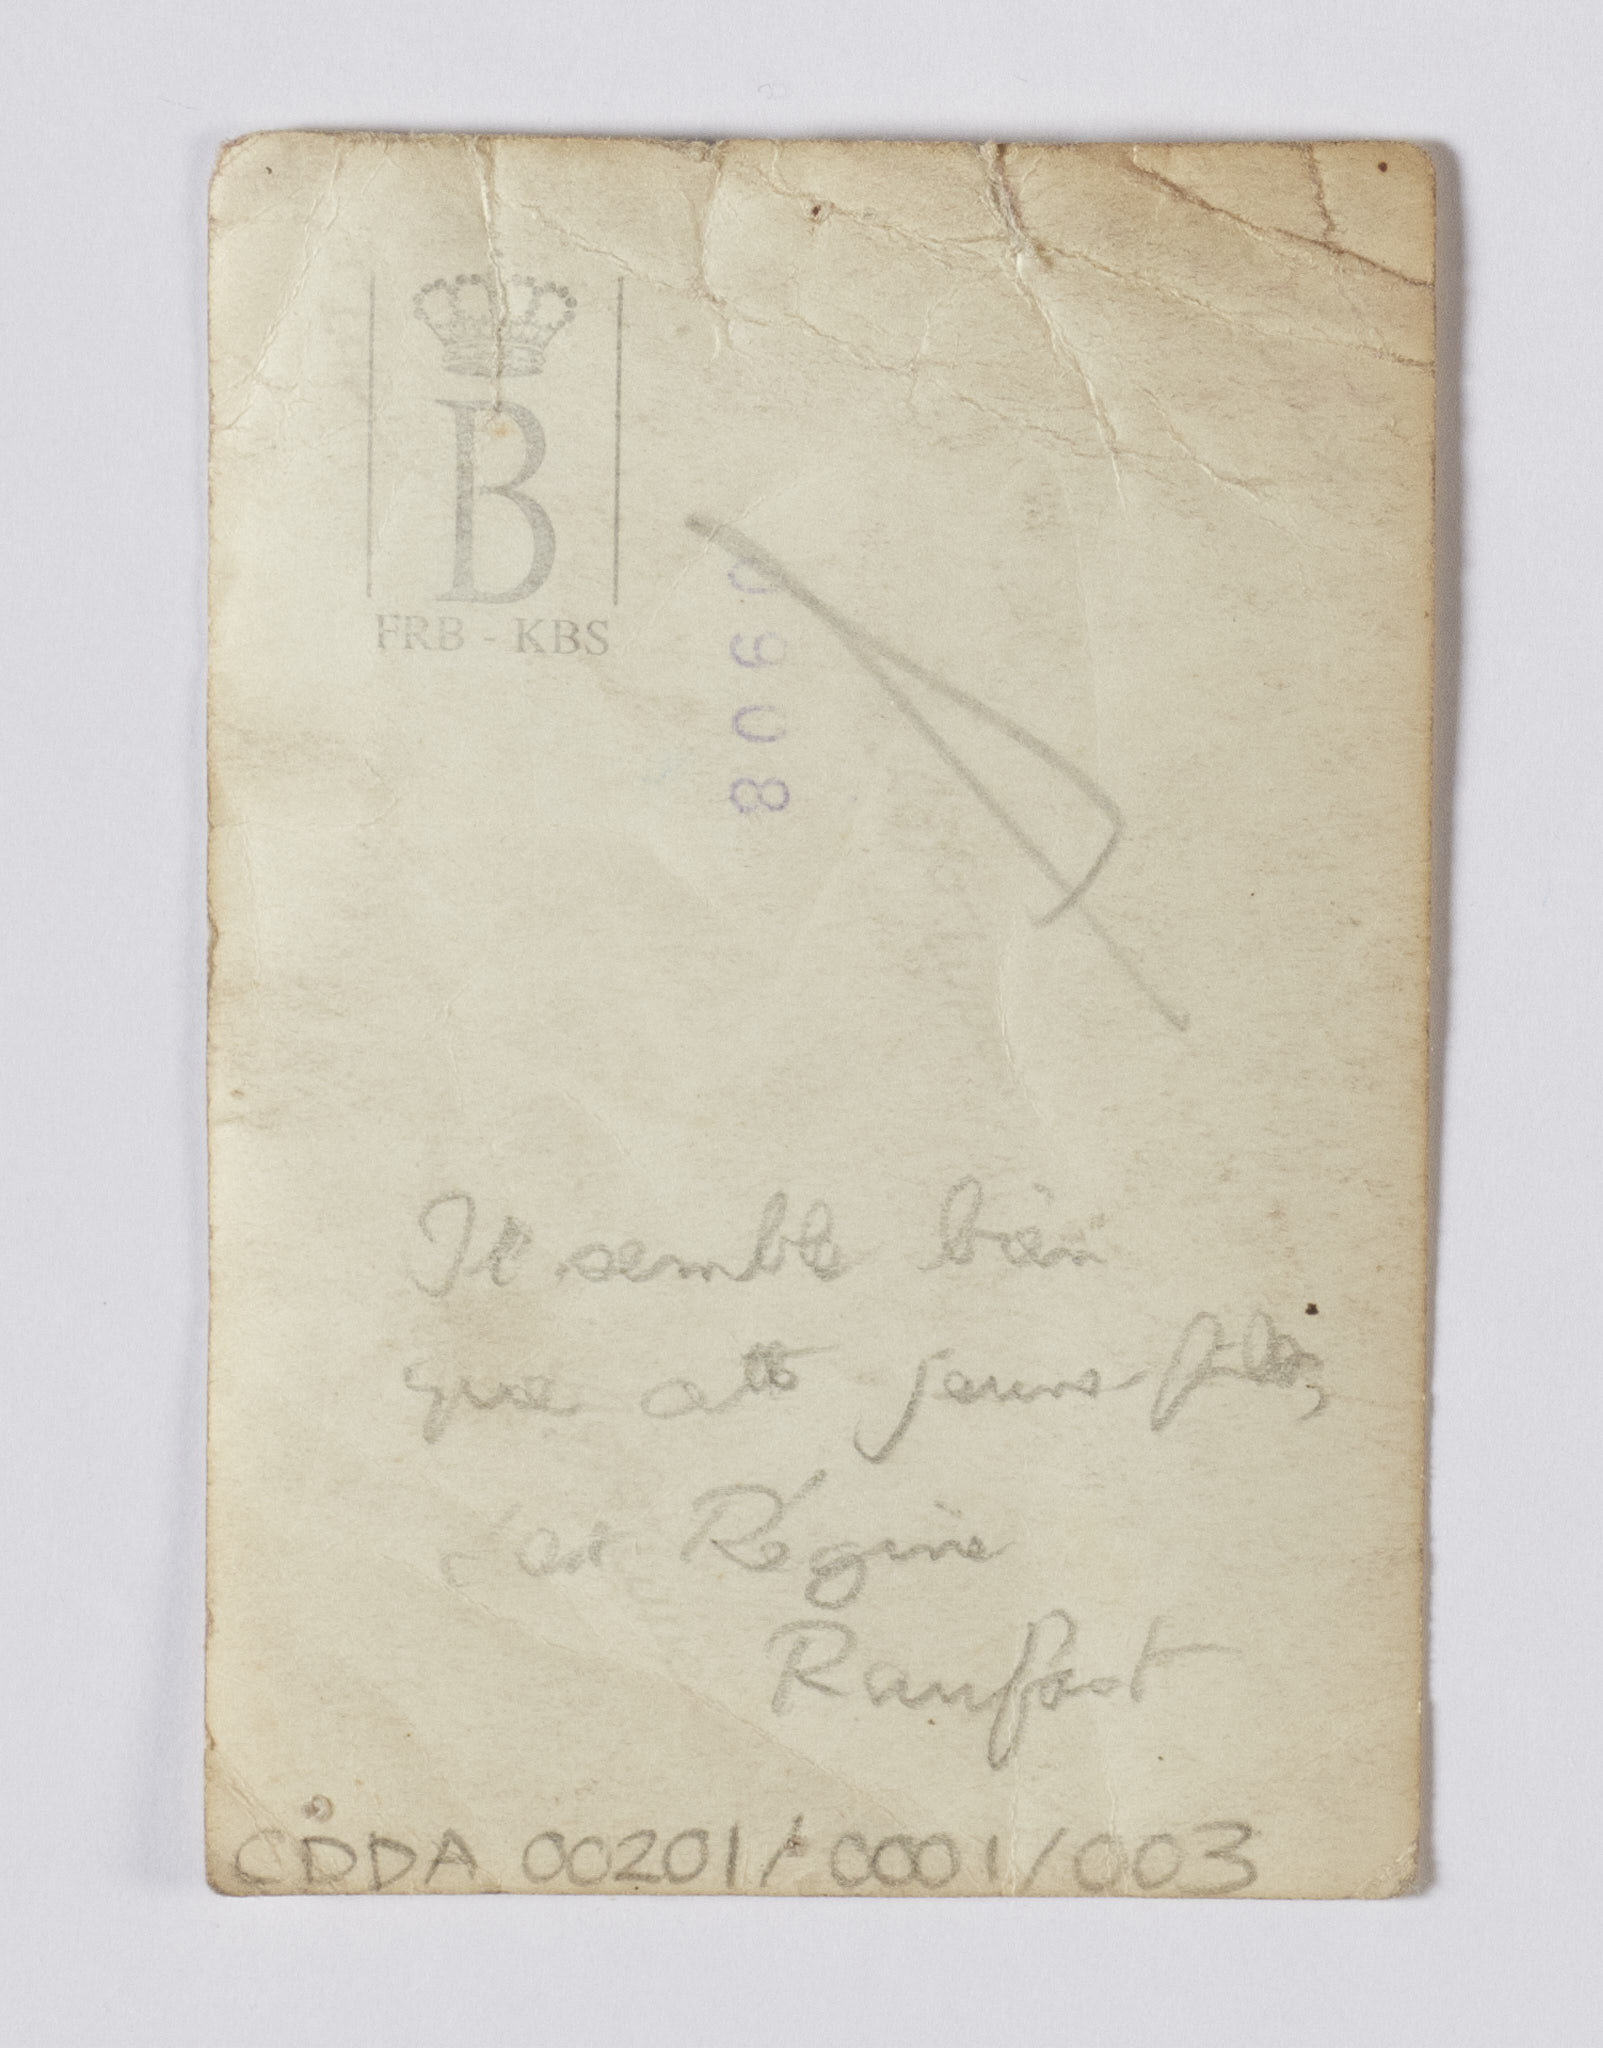 B
FRB - KBS
Il semble bien
que cette jeune fille,
c'est Régine
Ranfast
CDDA 00201/0001/003